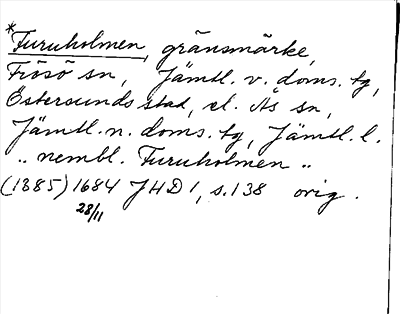 *Furuholmen, gränsmärke,
Frösö sn, Jämtl. v. doms. tg,
Östersunds stad, el. Ås sn,
Jämtl. n. doms. tg, Jämtl. l.
„ nembl. Furuholmen „
(1385) 1684 JHD 1, s. 138 orig.
28/11